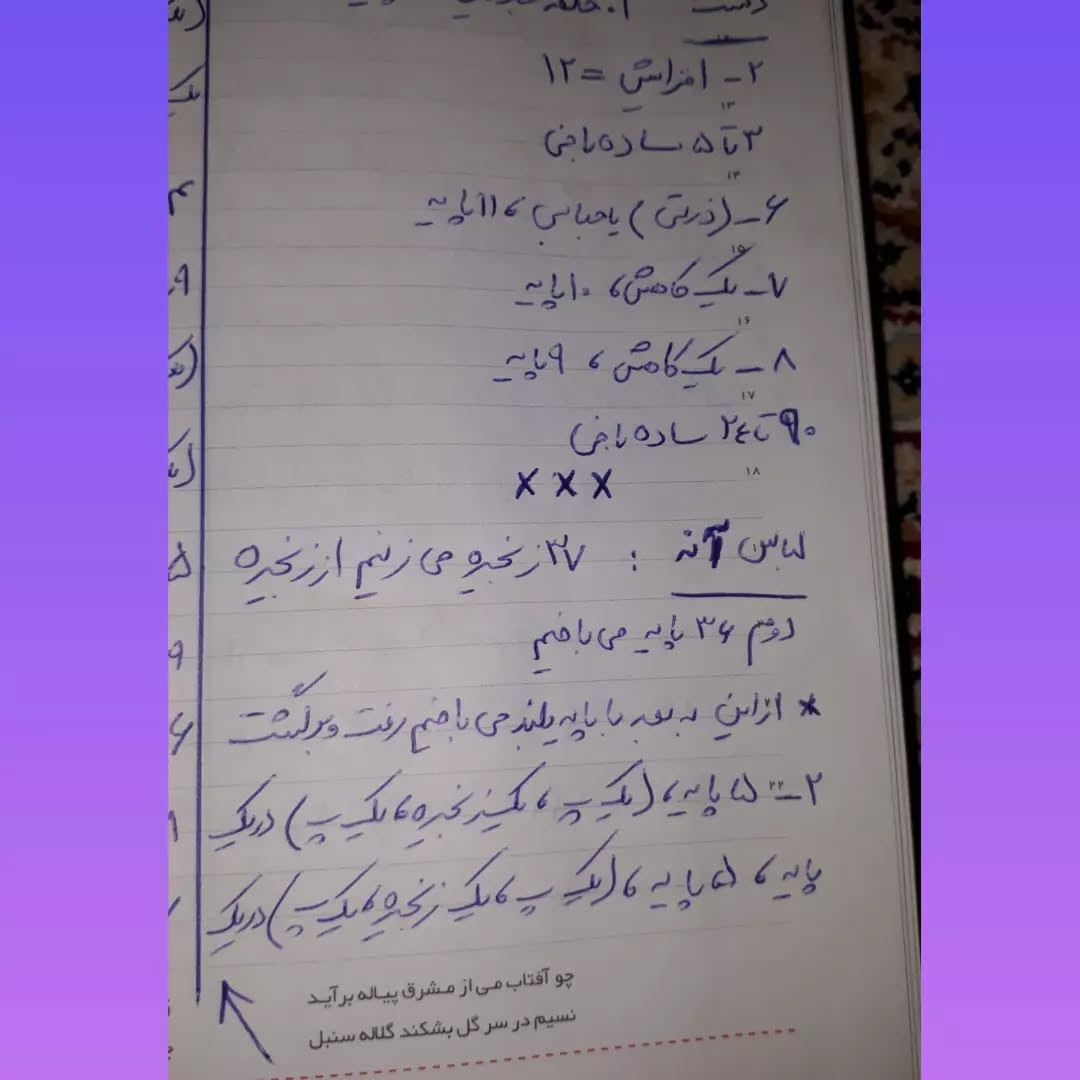 دست ۱.حلقه
۱۲
۲- افزایش = ۱۲
۱۳
۳ تا ۵ ساده بافی
۱۴
۶- (ذرتی) یا حبابی، ۱۱ پایه
۱۵
۷- یک کاهش، ۱۰ پایه
۱۶
۸- یک کاهش، ۹ پایه
۱۷
۹ تا ۲۴ ساده بافی
۱۸
x x x
لباس آنه : ۳۷ زنجیره می زنیم از زنجیره
دوم ۳۶ پایه می بافیم
* از این به بعد با پایه بلند می بافیم رفت و برگشت
۲۲
۲- ۵ پایه، (یک پ، یک زنجیره، یک پ) در یک
پایه، ۵ پایه، (یک پ، یک زنجیره، یک پ) در یک
چو آفتاب می از مشرق پیاله برآید
نسیم در سر گل بشکند کلاله سنبل